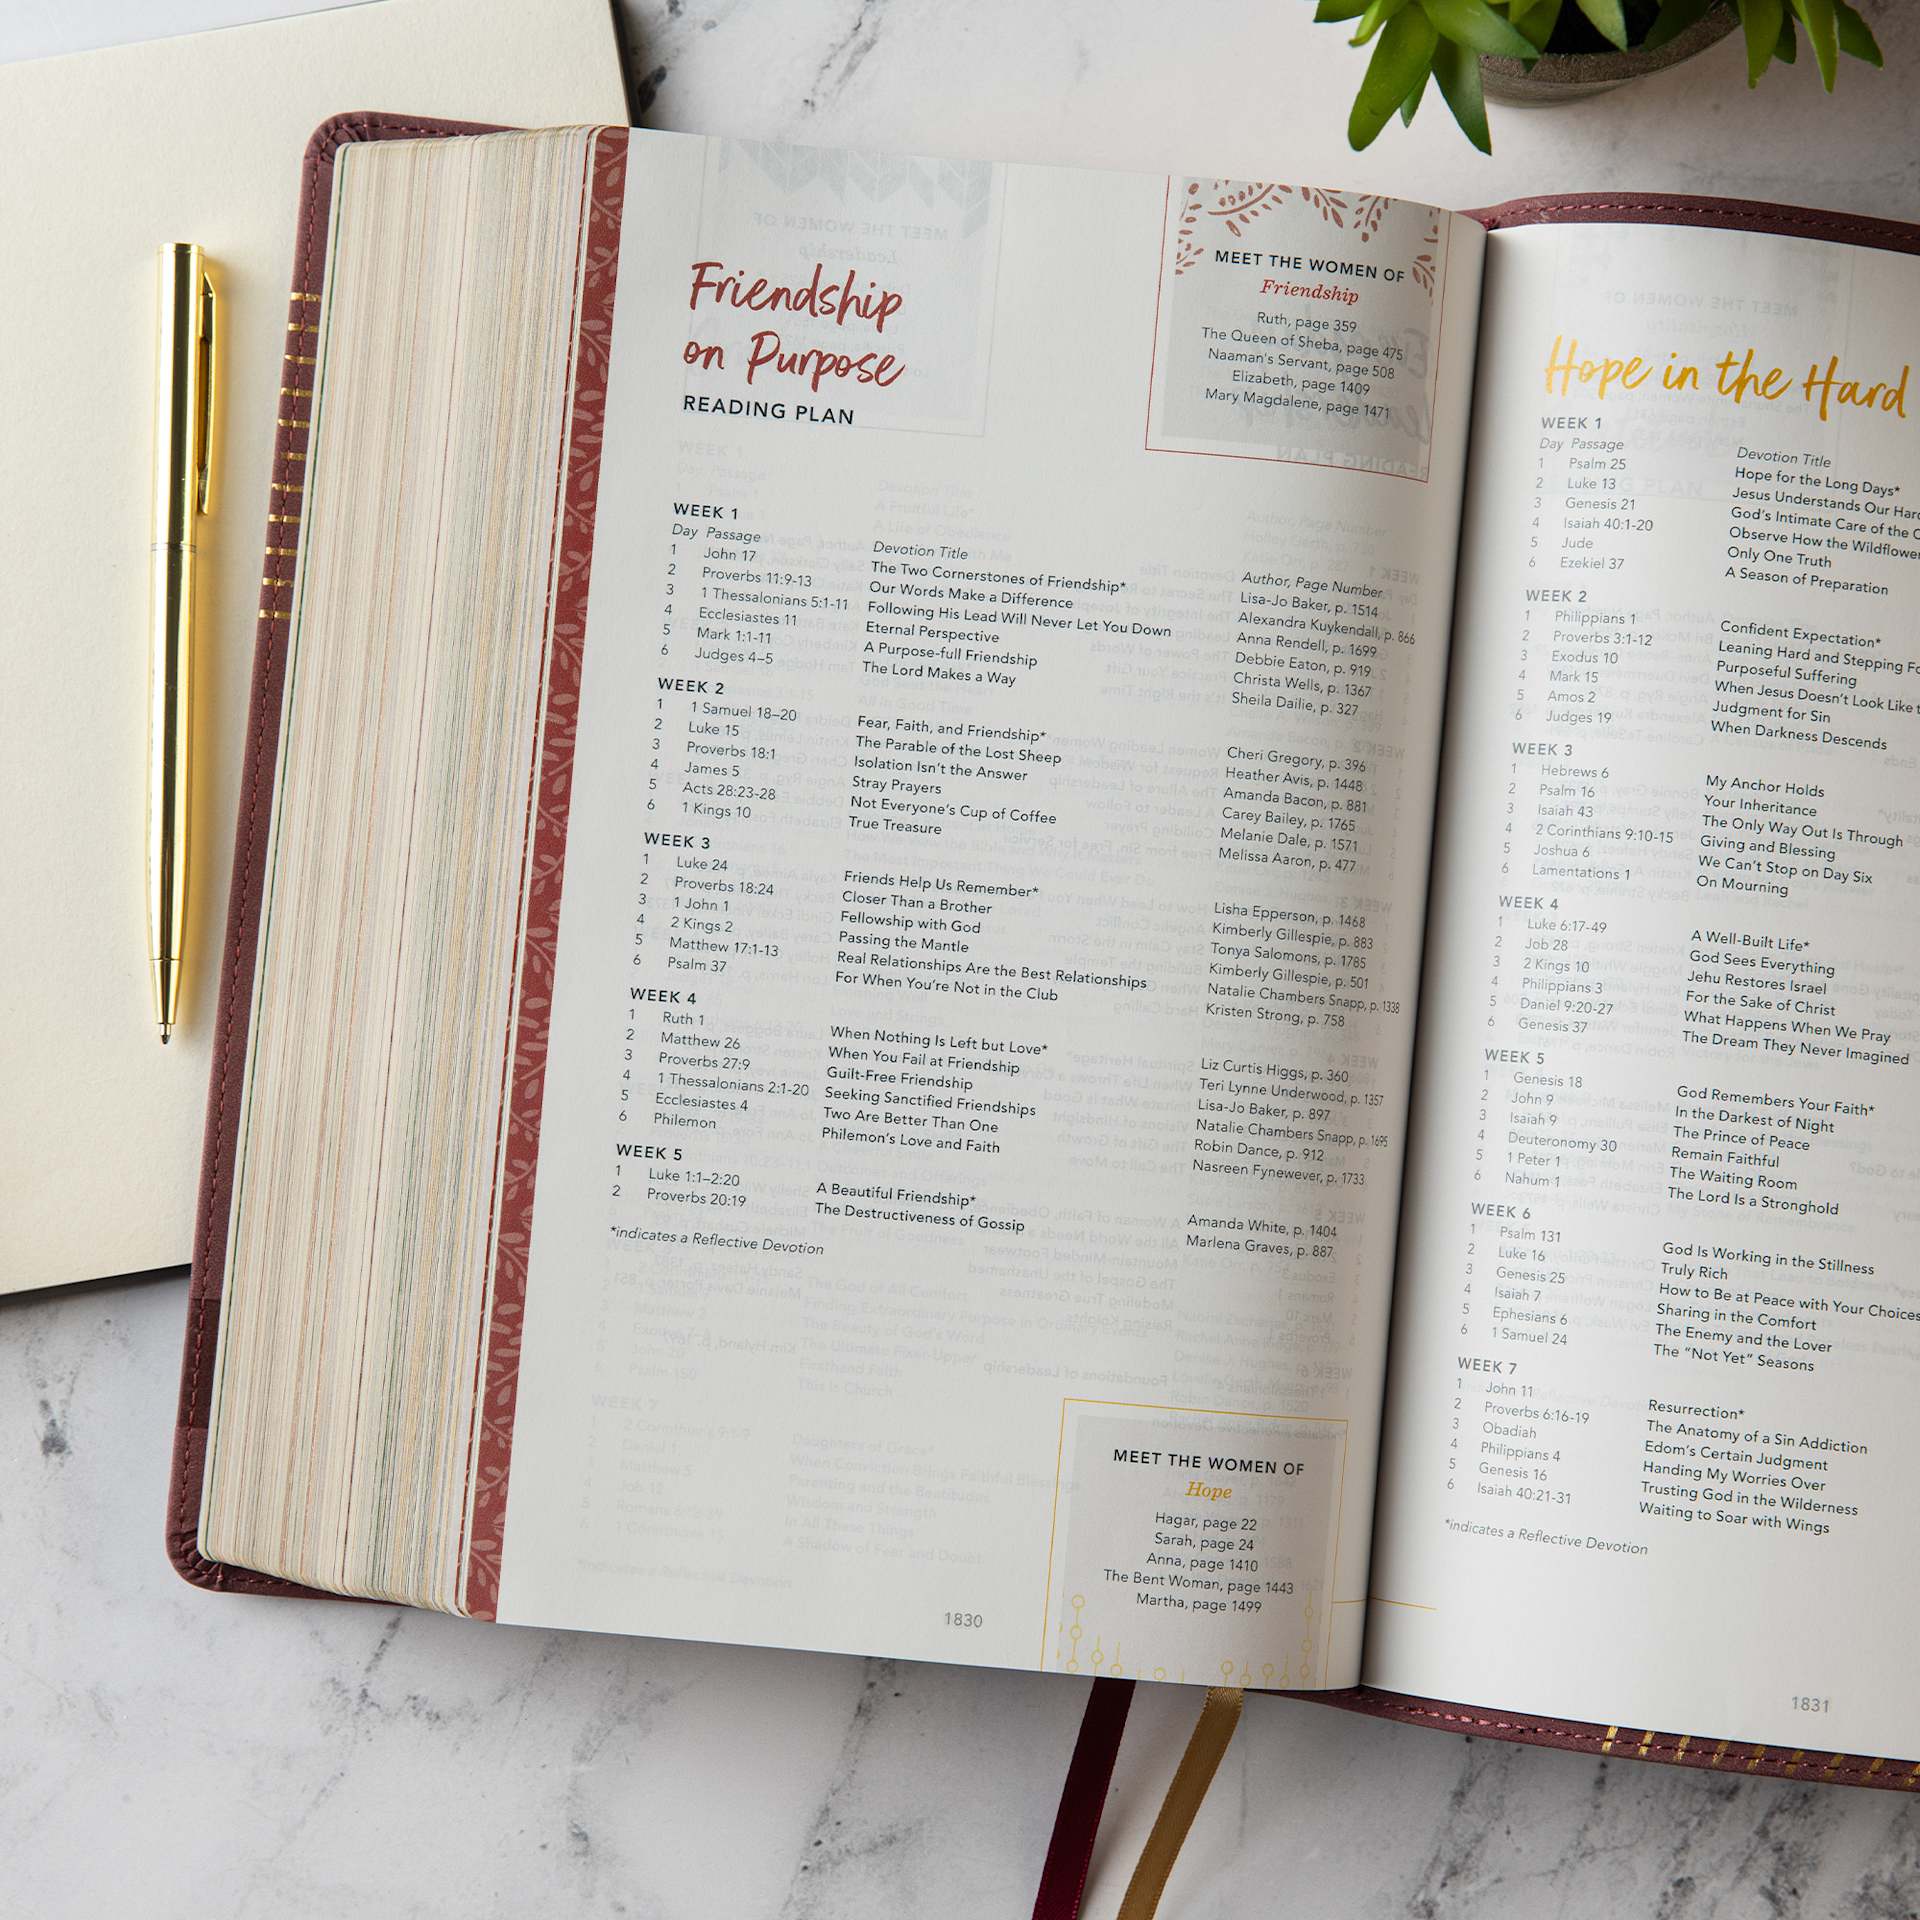 Friendship
on Purpose
READING PLAN
MEET THE WOMEN OF
Friendship
Ruth, page 359
The Queen of Sheba, page 475
Naaman's Servant, page 508
Elizabeth, page 1409
Mary Magdalene, page 1471
WEEK 1
Day Passage Devotion Title Author, Page Number
1 John 17 The Two Cornerstones of Friendship* Lisa-Jo Baker, p. 1514
2 Proverbs 11:9-13 Our Words Make a Difference Alexandra Kuykendall, p. 866
3 1 Thessalonians 5:1-11 Following His Lead Will Never Let You Down Anna Rendell, p. 1699
4 Ecclesiastes 11 Eternal Perspective Debbie Eaton, p. 919
5 Mark 1:1-11 A Purpose-full Friendship Christa Wells, p. 1367
6 Judges 4–5 The Lord Makes a Way Sheila Dailie, p. 327
WEEK 2
1 1 Samuel 18–20 Fear, Faith, and Friendship* Cheri Gregory, p. 396
2 Luke 15 The Parable of the Lost Sheep Heather Avis, p. 1448
3 Proverbs 18:1 Isolation Isn't the Answer Amanda Bacon, p. 881
4 James 5 Stray Prayers Carey Bailey, p. 1765
5 Acts 28:23-28 Not Everyone's Cup of Coffee Melanie Dale, p. 1571
6 1 Kings 10 True Treasure Melissa Aaron, p. 477
WEEK 3
1 Luke 24 Friends Help Us Remember* Lisha Epperson, p. 1468
2 Proverbs 18:24 Closer Than a Brother Kimberly Gillespie, p. 883
3 1 John 1 Fellowship with God Tonya Salomons, p. 1785
4 2 Kings 2 Passing the Mantle Kimberly Gillespie, p. 501
5 Matthew 17:1-13 Real Relationships Are the Best Relationships Natalie Chambers Snapp, p. 1338
6 Psalm 37 For When You're Not in the Club Kristen Strong, p. 758
WEEK 4
1 Ruth 1 When Nothing Is Left but Love* Liz Curtis Higgs, p. 360
2 Matthew 26 When You Fail at Friendship Teri Lynne Underwood, p. 1357
3 Proverbs 27:9 Guilt-Free Friendship Lisa-Jo Baker, p. 897
4 1 Thessalonians 2:1-20 Seeking Sanctified Friendships Natalie Chambers Snapp, p. 1695
5 Ecclesiastes 4 Two Are Better Than One Robin Dance, p. 912
6 Philemon Philemon's Love and Faith Nasreen Fynewever, p. 1733
WEEK 5
1 Luke 1:1–2:20 A Beautiful Friendship* Amanda White, p. 1404
2 Proverbs 20:19 The Destructiveness of Gossip Marlena Graves, p. 887
*indicates a Reflective Devotion
MEET THE WOMEN OF
Hope
Hagar, page 22
Sarah, page 24
Anna, page 1410
The Bent Woman, page 1443
Martha, page 1499
1830
Hope in the Hard
WEEK 1
Day Passage Devotion Title
1 Psalm 25 Hope for the Long Days*
2 Luke 13 Jesus Understands Our Hard
3 Genesis 21 God's Intimate Care of the
4 Isaiah 40:1-20 Observe How the Wildflower
5 Jude Only One Truth
6 Ezekiel 37 A Season of Preparation
WEEK 2
1 Philippians 1 Confident Expectation*
2 Proverbs 3:1-12 Leaning Hard and Stepping
3 Exodus 10 Purposeful Suffering
4 Mark 15 When Jesus Doesn't Look Like
5 Amos 2 Judgment for Sin
6 Judges 19 When Darkness Descends
WEEK 3
1 Hebrews 6 My Anchor Holds
2 Psalm 16 Your Inheritance
3 Isaiah 43 The Only Way Out Is Through
4 2 Corinthians 9:10-15 Giving and Blessing
5 Joshua 6 We Can't Stop on Day Six
6 Lamentations 1 On Mourning
WEEK 4
1 Luke 6:17-49 A Well-Built Life*
2 Job 28 God Sees Everything
3 2 Kings 10 Jehu Restores Israel
4 Philippians 3 For the Sake of Christ
5 Daniel 9:20-27 What Happens When We Pray
6 Genesis 37 The Dream They Never Imagined
WEEK 5
1 Genesis 18 God Remembers Your Faith*
2 John 9 In the Darkest of Night
3 Isaiah 9 The Prince of Peace
4 Deuteronomy 30 Remain Faithful
5 1 Peter 1 The Waiting Room
6 Nahum 1 The Lord Is a Stronghold
WEEK 6
1 Psalm 131 God Is Working in the Stillness
2 Luke 16 Truly Rich
3 Genesis 25 How to Be at Peace with Your Choices
4 Isaiah 7 Sharing in the Comfort
5 Ephesians 6 The Enemy and the Lover
6 1 Samuel 24 The "Not Yet" Seasons
WEEK 7
1 John 11 Resurrection*
2 Proverbs 6:16-19 The Anatomy of a Sin Addiction
3 Obadiah Edom's Certain Judgment
4 Philippians 4 Handing My Worries Over
5 Genesis 16 Trusting God in the Wilderness
6 Isaiah 40:21-31 Waiting to Soar with Wings
*indicates a Reflective Devotion
1831